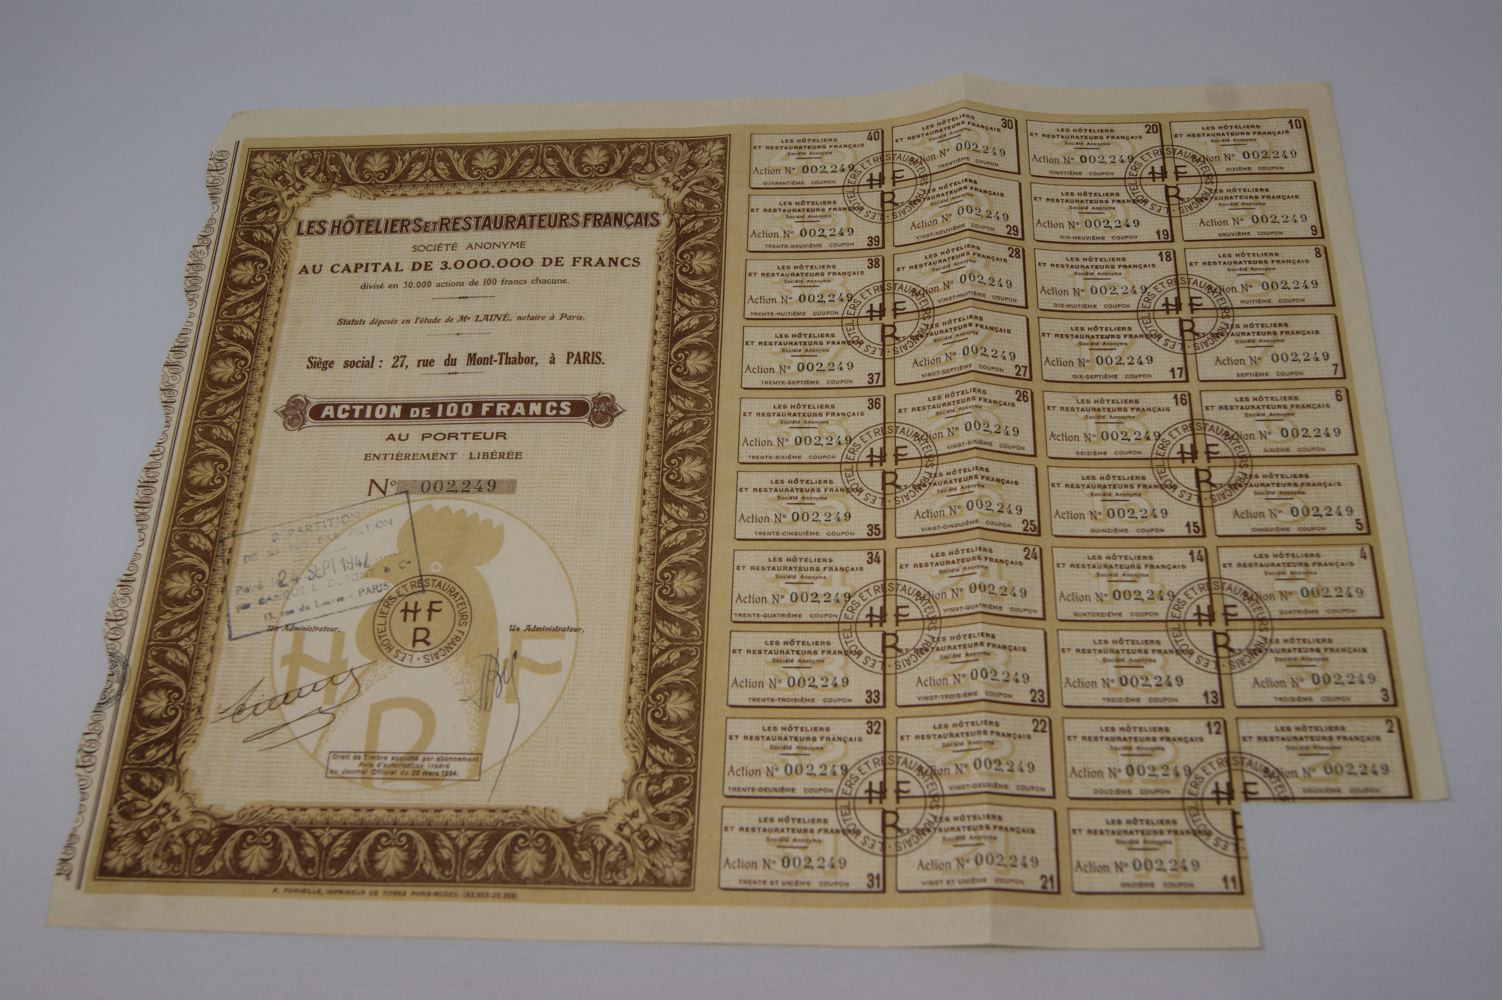 LES HÔTELIERS ET RESTAURATEURS FRANÇAIS
SOCIÉTÉ ANONYME
AU CAPITAL DE 3.000.000 DE FRANCS
divisé en 30.000 actions de 100 francs chacune.
Statuts déposés en l'étude de Me LAINÉ, notaire à Paris.
Siège social : 27, rue du Mont-Thabor, à PARIS.
ACTION DE 100 FRANCS
AU PORTEUR
ENTIÈREMENT LIBÉRÉE
N° 002,249
RÉPARTITION
24 SEPT 1942
PARIS
Un Administrateur,
Un Administrateur,
LES HÔTELIERS ET RESTAURATEURS FRANÇAIS
H F
R
H F
R
Droit de Timbre acquitté par abonnement
Avis d'autorisation inséré
au Journal Officiel du 20 mars 1934.
F. FORVEILLE, IMPRIMEUR DE TITRES PARIS-RODEZ.
LES HÔTELIERS
ET RESTAURATEURS FRANÇAIS
Société Anonyme
Action N° 002,249
QUARANTIÈME COUPON
40
LES HÔTELIERS
ET RESTAURATEURS FRANÇAIS
Société Anonyme
Action N° 002,249
TRENTIÈME COUPON
30
LES HÔTELIERS
ET RESTAURATEURS FRANÇAIS
Société Anonyme
Action N° 002,249
VINGTIÈME COUPON
20
LES HÔTELIERS
ET RESTAURATEURS FRANÇAIS
Société Anonyme
Action N° 002,249
DIXIÈME COUPON
10
LES HÔTELIERS
ET RESTAURATEURS FRANÇAIS
Société Anonyme
Action N° 002,249
TRENTE-NEUVIÈME COUPON
39
LES HÔTELIERS
ET RESTAURATEURS FRANÇAIS
Société Anonyme
Action N° 002,249
VINGT-NEUVIÈME COUPON
29
LES HÔTELIERS
ET RESTAURATEURS FRANÇAIS
Société Anonyme
Action N° 002,249
DIX-NEUVIÈME COUPON
19
LES HÔTELIERS
ET RESTAURATEURS FRANÇAIS
Société Anonyme
Action N° 002,249
NEUVIÈME COUPON
9
LES HÔTELIERS
ET RESTAURATEURS FRANÇAIS
Société Anonyme
Action N° 002,249
TRENTE-HUITIÈME COUPON
38
LES HÔTELIERS
ET RESTAURATEURS FRANÇAIS
Société Anonyme
Action N° 002,249
VINGT-HUITIÈME COUPON
28
LES HÔTELIERS
ET RESTAURATEURS FRANÇAIS
Société Anonyme
Action N° 002,249
DIX-HUITIÈME COUPON
18
LES HÔTELIERS
ET RESTAURATEURS FRANÇAIS
Société Anonyme
Action N° 002,249
HUITIÈME COUPON
8
LES HÔTELIERS
ET RESTAURATEURS FRANÇAIS
Société Anonyme
Action N° 002,249
TRENTE-SEPTIÈME COUPON
37
LES HÔTELIERS
ET RESTAURATEURS FRANÇAIS
Société Anonyme
Action N° 002,249
VINGT-SEPTIÈME COUPON
27
LES HÔTELIERS
ET RESTAURATEURS FRANÇAIS
Société Anonyme
Action N° 002,249
DIX-SEPTIÈME COUPON
17
LES HÔTELIERS
ET RESTAURATEURS FRANÇAIS
Société Anonyme
Action N° 002,249
SEPTIÈME COUPON
7
LES HÔTELIERS
ET RESTAURATEURS FRANÇAIS
Société Anonyme
Action N° 002,249
TRENTE-SIXIÈME COUPON
36
LES HÔTELIERS
ET RESTAURATEURS FRANÇAIS
Société Anonyme
Action N° 002,249
VINGT-SIXIÈME COUPON
26
LES HÔTELIERS
ET RESTAURATEURS FRANÇAIS
Société Anonyme
Action N° 002,249
SEIZIÈME COUPON
16
LES HÔTELIERS
ET RESTAURATEURS FRANÇAIS
Société Anonyme
Action N° 002,249
SIXIÈME COUPON
6
LES HÔTELIERS
ET RESTAURATEURS FRANÇAIS
Société Anonyme
Action N° 002,249
TRENTE-CINQUIÈME COUPON
35
LES HÔTELIERS
ET RESTAURATEURS FRANÇAIS
Société Anonyme
Action N° 002,249
VINGT-CINQUIÈME COUPON
25
LES HÔTELIERS
ET RESTAURATEURS FRANÇAIS
Société Anonyme
Action N° 002,249
QUINZIÈME COUPON
15
LES HÔTELIERS
ET RESTAURATEURS FRANÇAIS
Société Anonyme
Action N° 002,249
CINQUIÈME COUPON
5
LES HÔTELIERS
ET RESTAURATEURS FRANÇAIS
Société Anonyme
Action N° 002,249
TRENTE-QUATRIÈME COUPON
34
LES HÔTELIERS
ET RESTAURATEURS FRANÇAIS
Société Anonyme
Action N° 002,249
VINGT-QUATRIÈME COUPON
24
LES HÔTELIERS
ET RESTAURATEURS FRANÇAIS
Société Anonyme
Action N° 002,249
QUATORZIÈME COUPON
14
LES HÔTELIERS
ET RESTAURATEURS FRANÇAIS
Société Anonyme
Action N° 002,249
QUATRIÈME COUPON
4
LES HÔTELIERS
ET RESTAURATEURS FRANÇAIS
Société Anonyme
Action N° 002,249
TRENTE-TROISIÈME COUPON
33
LES HÔTELIERS
ET RESTAURATEURS FRANÇAIS
Société Anonyme
Action N° 002,249
VINGT-TROISIÈME COUPON
23
LES HÔTELIERS
ET RESTAURATEURS FRANÇAIS
Société Anonyme
Action N° 002,249
TREIZIÈME COUPON
13
LES HÔTELIERS
ET RESTAURATEURS FRANÇAIS
Société Anonyme
Action N° 002,249
TROISIÈME COUPON
3
LES HÔTELIERS
ET RESTAURATEURS FRANÇAIS
Société Anonyme
Action N° 002,249
TRENTE-DEUXIÈME COUPON
32
LES HÔTELIERS
ET RESTAURATEURS FRANÇAIS
Société Anonyme
Action N° 002,249
VINGT-DEUXIÈME COUPON
22
LES HÔTELIERS
ET RESTAURATEURS FRANÇAIS
Société Anonyme
Action N° 002,249
DOUZIÈME COUPON
12
LES HÔTELIERS
ET RESTAURATEURS FRANÇAIS
Société Anonyme
Action N° 002,249
DEUXIÈME COUPON
2
LES HÔTELIERS
ET RESTAURATEURS FRANÇAIS
Société Anonyme
Action N° 002,249
TRENTE ET UNIÈME COUPON
31
LES HÔTELIERS
ET RESTAURATEURS FRANÇAIS
Société Anonyme
Action N° 002,249
VINGT ET UNIÈME COUPON
21
LES HÔTELIERS
ET RESTAURATEURS FRANÇAIS
Société Anonyme
Action N° 002,249
ONZIÈME COUPON
11